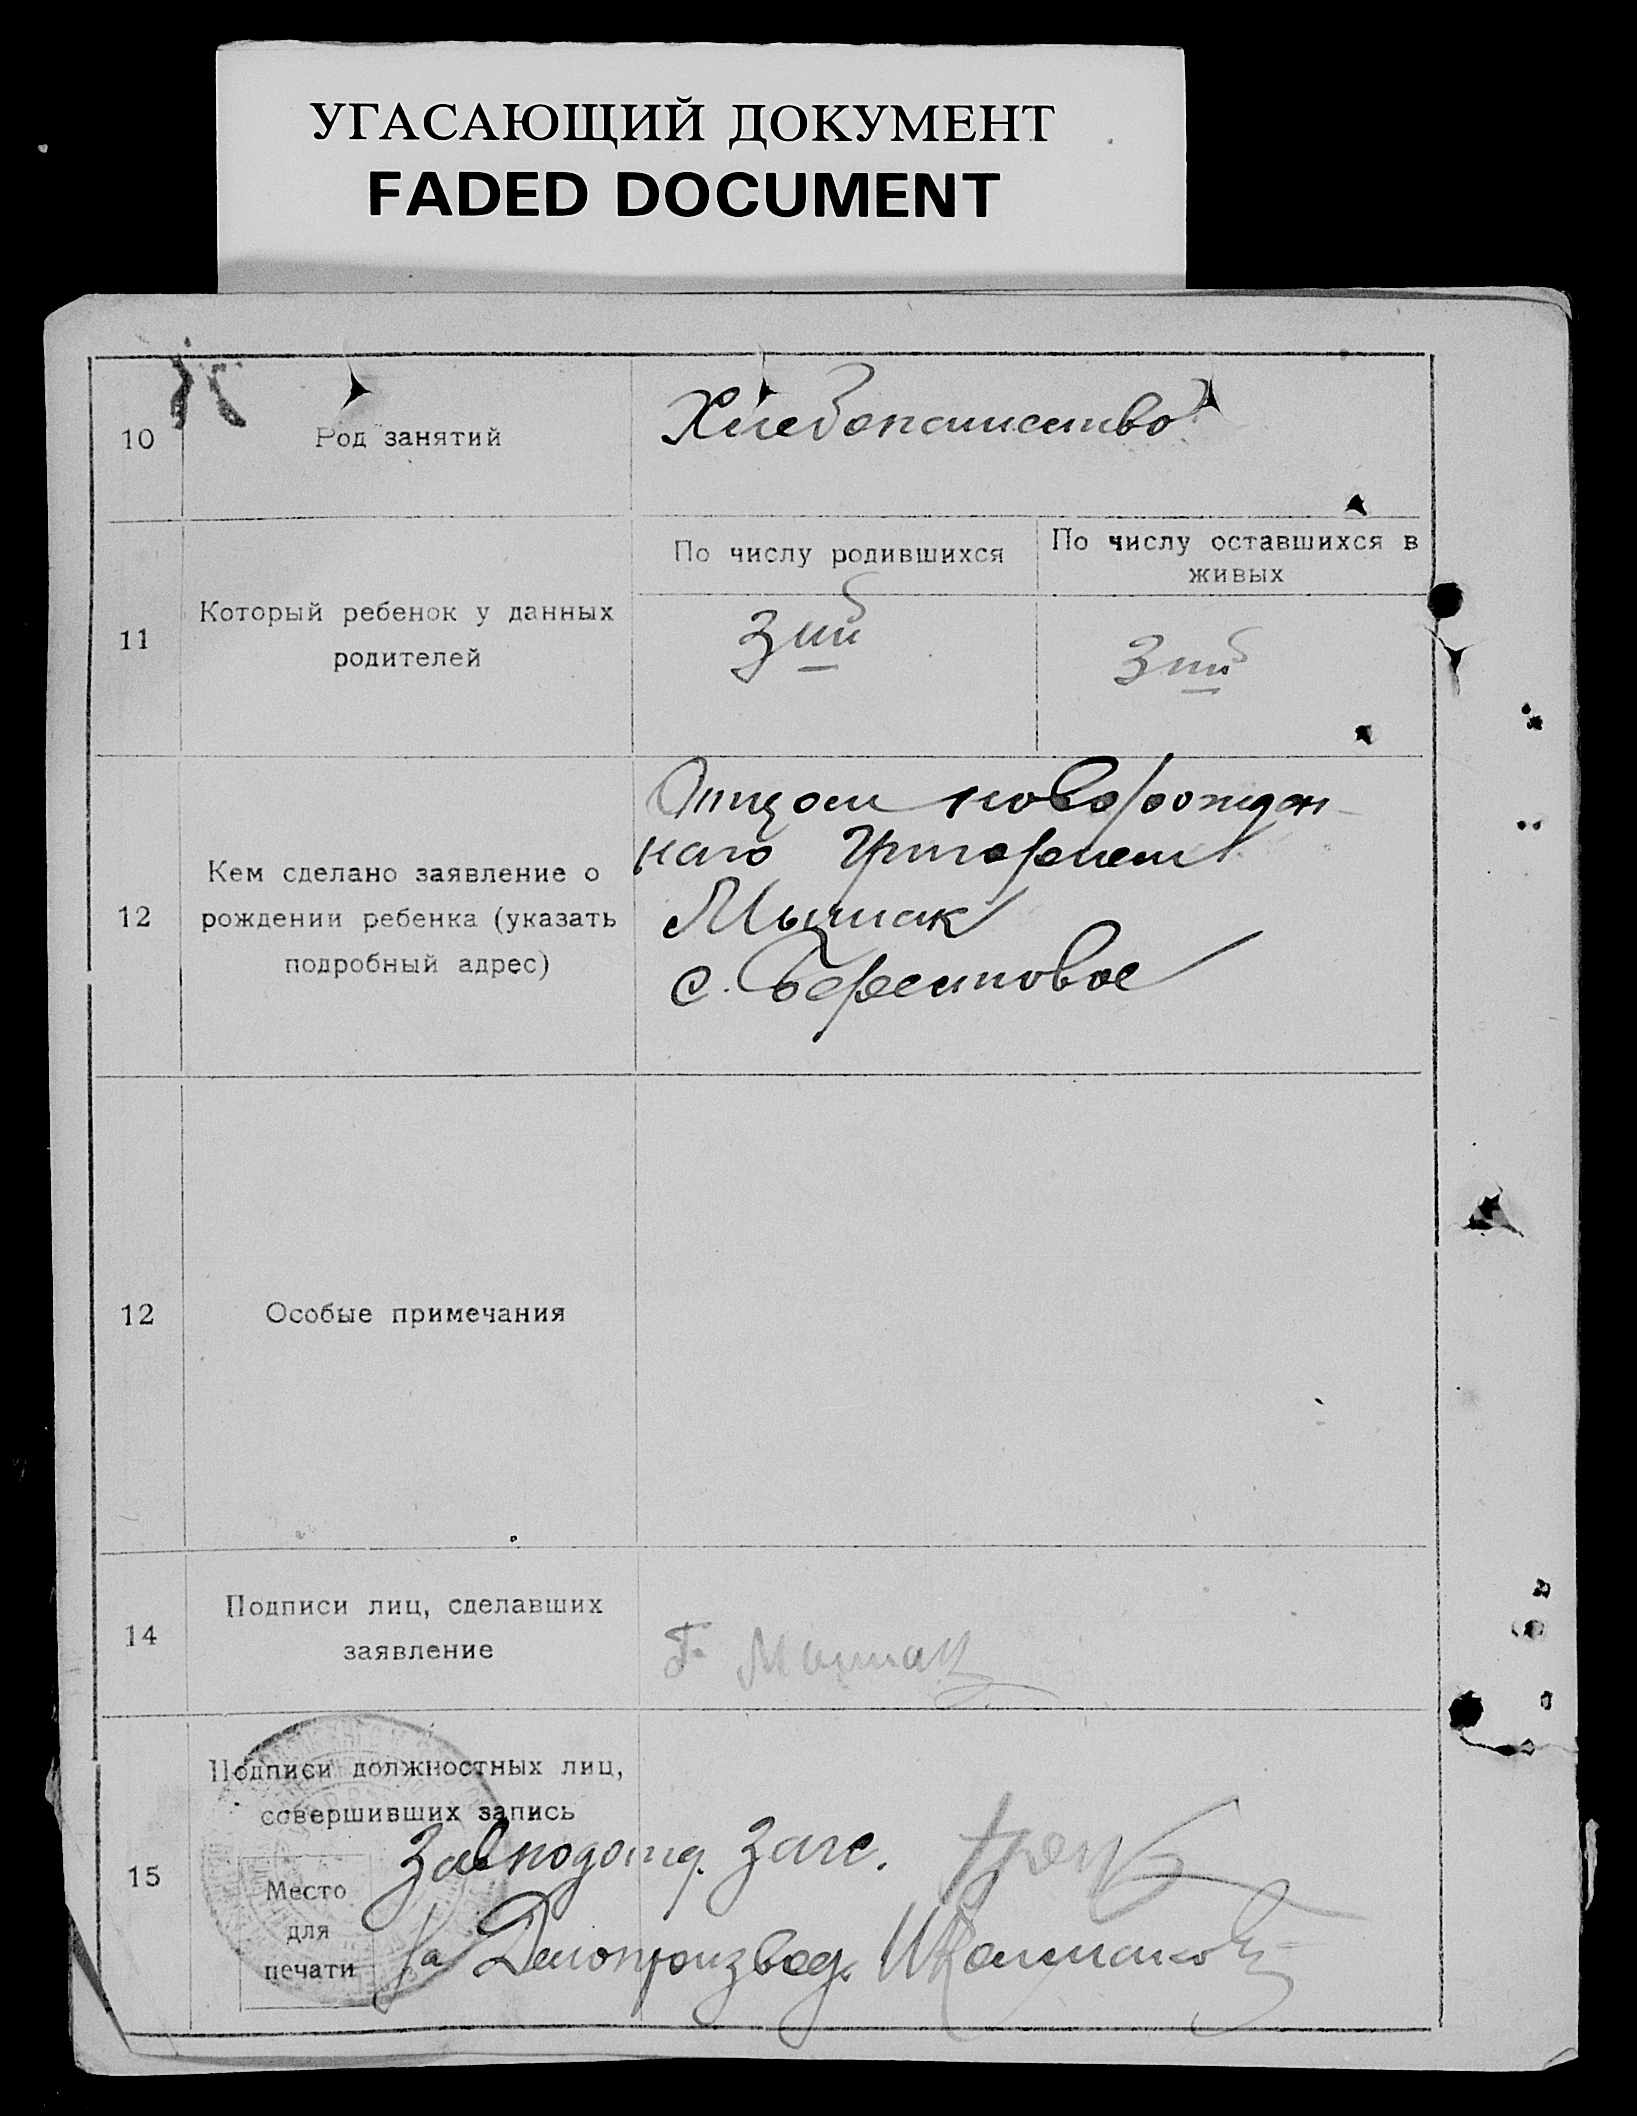 УГАСАЮЩИЙ ДОКУМЕНТ
FADED DOCUMENT
10
Род занятий
Хлебопашество
11
Который ребенок у данных
родителей
По числу родившихся
По числу оставшихся в
живых
3ий
3ий
12
Кем сделано заявление о
рождении ребенка (указать
подробный адрес)
Отцом новорожден-
наго Григорием
Мышак
с. Берестовое
12
Особые примечания
14
Подписи лиц, сделавших
заявление
Г. Мышак
15
Подписи должностных лиц,
совершивших запись
Завподотд. Загс.
Место
для
печати
За Делопроизвод.